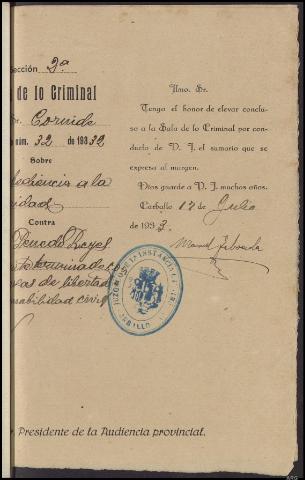 Sección 2ª
de lo Criminal
Sr. Cornide
núm. 32 de 1932
Sobre
desobediencia a la
Contra
Penedo Reyes
terminado
de libertad
civil
Ilmo. Sr.
Tengo el honor de elevar conclu-
so a la Sala de lo Criminal por con-
ducto de V. I. el sumario que se
expresa al margen.
Dios guarde a V. I. muchos años.
Carballo 17 de Julio
de 1933.
Manuel
JUZGADO DE INSTANCIA E INS.
CARBALLO
Presidente de la Audiencia provincial.